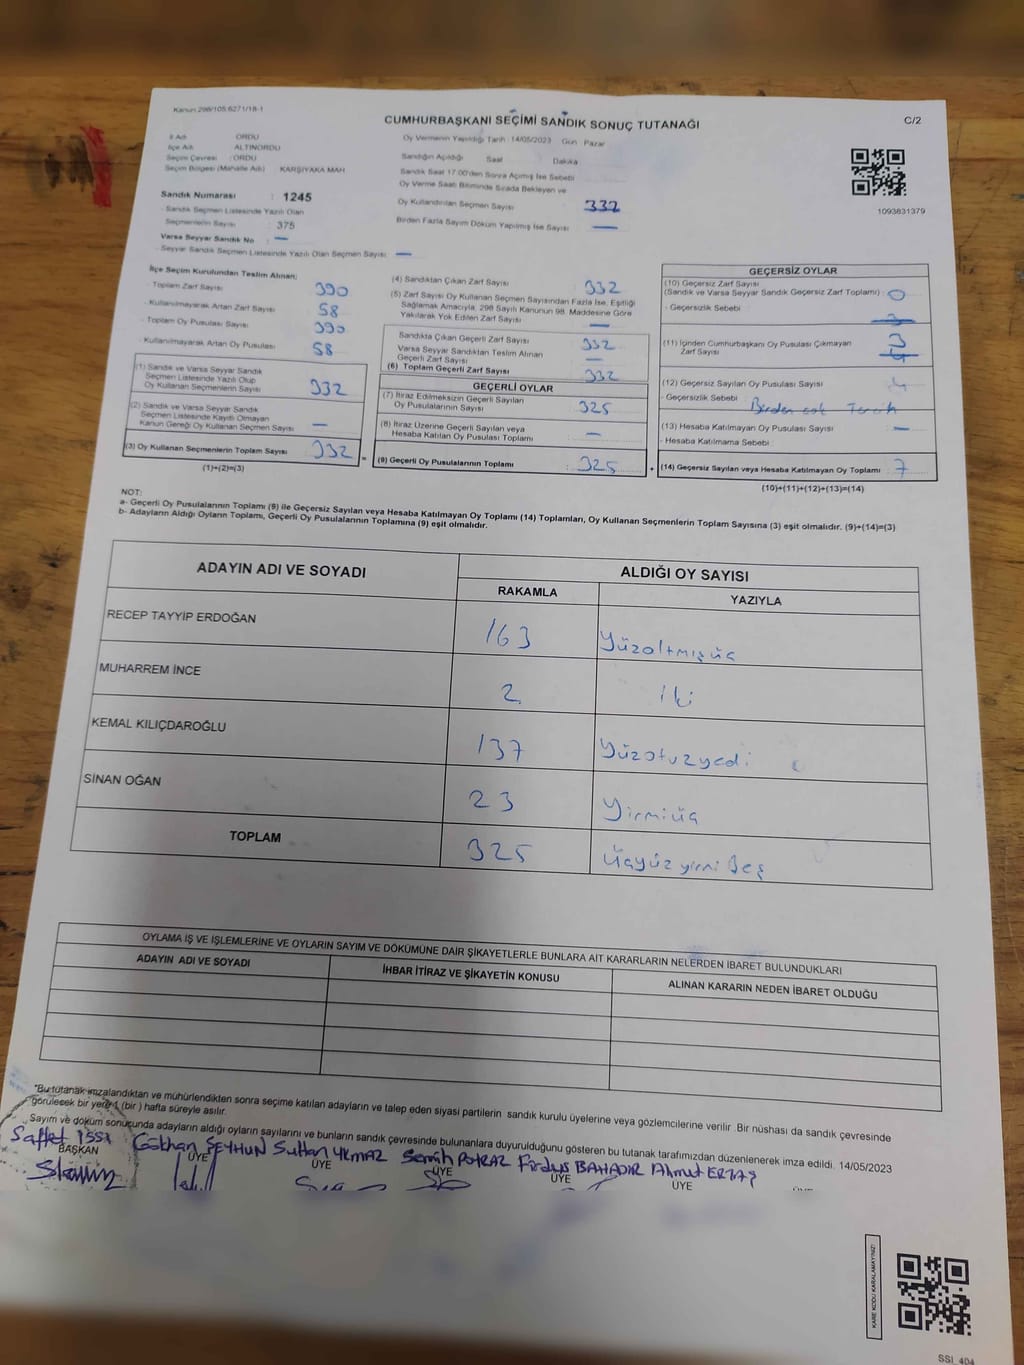 Kanun 298/105 6271/18-1
CUMHURBAŞKANI SEÇİMİ SANDIK SONUÇ TUTANAĞI
C/2
İl Adı : ORDU
İlçe Adı : ALTINORDU
Seçim Çevresi : ORDU
Seçim Bölgesi (Mahalle Adı) : KARŞIYAKA MAH
Sandık Numarası : 1245
- Sandık Seçmen Listesinde Yazılı Olan
Seçmenlerin Sayısı : 375
Varsa Seyyar Sandık No : —
- Seyyar Sandık Seçmen Listesinde Yazılı Olan Seçmen Sayısı : —
Oy Vermenin Yapıldığı Tarih : 14/05/2023 Gün : Pazar
Sandığın Açıldığı Saat Dakika
Sandık Saat 17.00'den Sonra Açılmış İse Sebebi
Oy Verme Saati Bitiminde Sırada Bekleyen ve
Oy Kullandırılan Seçmen Sayısı 332
Birden Fazla Sayım Döküm Yapılmış İse Sayısı : —
1093831379
İlçe Seçim Kurulundan Teslim Alınan;
- Toplam Zarf Sayısı : 390
- Kullanılmayarak Artan Zarf Sayısı : 58
- Toplam Oy Pusulası Sayısı : 390
- Kullanılmayarak Artan Oy Pusulası : 58
(1) Sandık ve Varsa Seyyar Sandık
Seçmen Listesinde Yazılı Olup
Oy Kullanan Seçmenlerin Sayısı : 332
(2) Sandık ve Varsa Seyyar Sandık
Seçmen Listesinde Kayıtlı Olmayan
Kanun Gereği Oy Kullanan Seçmen Sayısı : —
(3) Oy Kullanan Seçmenlerin Toplam Sayısı : 332
(1)+(2)=(3)
(4) Sandıktan Çıkan Zarf Sayısı : 332
(5) Zarf Sayısı Oy Kullanan Seçmen Sayısından Fazla İse, Eşitliği
Sağlamak Amacıyla, 298 Sayılı Kanunun 98. Maddesine Göre
Yakılarak Yok Edilen Zarf Sayısı : —
Sandıkta Çıkan Geçerli Zarf Sayısı : 332
Varsa Seyyar Sandıktan Teslim Alınan
Geçerli Zarf Sayısı : —
(6) Toplam Geçerli Zarf Sayısı : 332
GEÇERLİ OYLAR
(7) İtiraz Edilmeksizin Geçerli Sayılan
Oy Pusulalarının Sayısı : 325
(8) İtiraz Üzerine Geçerli Sayılan veya
Hesaba Katılan Oy Pusulası Toplamı : —
(9) Geçerli Oy Pusulalarının Toplamı : 325
GEÇERSİZ OYLAR
(10) Geçersiz Zarf Sayısı
(Sandık ve Varsa Seyyar Sandık Geçersiz Zarf Toplamı) : 0
- Geçersizlik Sebebi :
(11) İçinden Cumhurbaşkanı Oy Pusulası Çıkmayan
Zarf Sayısı : 3
(12) Geçersiz Sayılan Oy Pusulası Sayısı : 4
- Geçersizlik Sebebi : Birden çok Tercih
(13) Hesaba Katılmayan Oy Pusulası Sayısı : —
- Hesaba Katılmama Sebebi :
(14) Geçersiz Sayılan veya Hesaba Katılmayan Oy Toplamı : 7
(10)+(11)+(12)+(13)=(14)
NOT:
a- Geçerli Oy Pusulalarının Toplamı (9) ile Geçersiz Sayılan veya Hesaba Katılmayan Oy Toplamı (14) Toplamları, Oy Kullanan Seçmenlerin Toplam Sayısına (3) eşit olmalıdır. (9)+(14)=(3)
b- Adayların Aldığı Oyların Toplamı, Geçerli Oy Pusulalarının Toplamına (9) eşit olmalıdır.
ADAYIN ADI VE SOYADI
ALDIĞI OY SAYISI
RAKAMLA YAZIYLA
RECEP TAYYİP ERDOĞAN 163 Yüzaltmışüç
MUHARREM İNCE 2 iki
KEMAL KILIÇDAROĞLU 137 Yüzotuzyedi
SİNAN OĞAN 23 Yirmiüç
TOPLAM 325 Üçyüz yirmi Beş
OYLAMA İŞ VE İŞLEMLERİNE VE OYLARIN SAYIM VE DÖKÜMÜNE DAİR ŞİKAYETLERLE BUNLARA AİT KARARLARIN NELERDEN İBARET BULUNDUKLARI
ADAYIN ADI VE SOYADI İHBAR İTİRAZ VE ŞİKAYETİN KONUSU ALINAN KARARIN NEDEN İBARET OLDUĞU
*Bu tutanak imzalandıktan ve mühürlendikten sonra seçime katılan adayların ve talep eden siyasi partilerin sandık kurulu üyelerine veya gözlemcilerine verilir. Bir nüshası da sandık çevresinde
görülecek bir yere 1 (bir) hafta süreyle asılır.
Sayım ve döküm sonucunda adayların aldığı oyların sayılarını ve bunların sandık çevresinde bulunanlara duyurulduğunu gösteren bu tutanak tarafımızdan düzenlenerek imza edildi. 14/05/2023
Saffet İSSİ Gökhan SEYHUN Sultan YILMAZ Semih POYRAZ Firdevs BAHADIR Ahmet ERTAŞ
BAŞKAN ÜYE ÜYE ÜYE ÜYE ÜYE
KARE KODU KARALAMAYINIZ!
SSİ 404